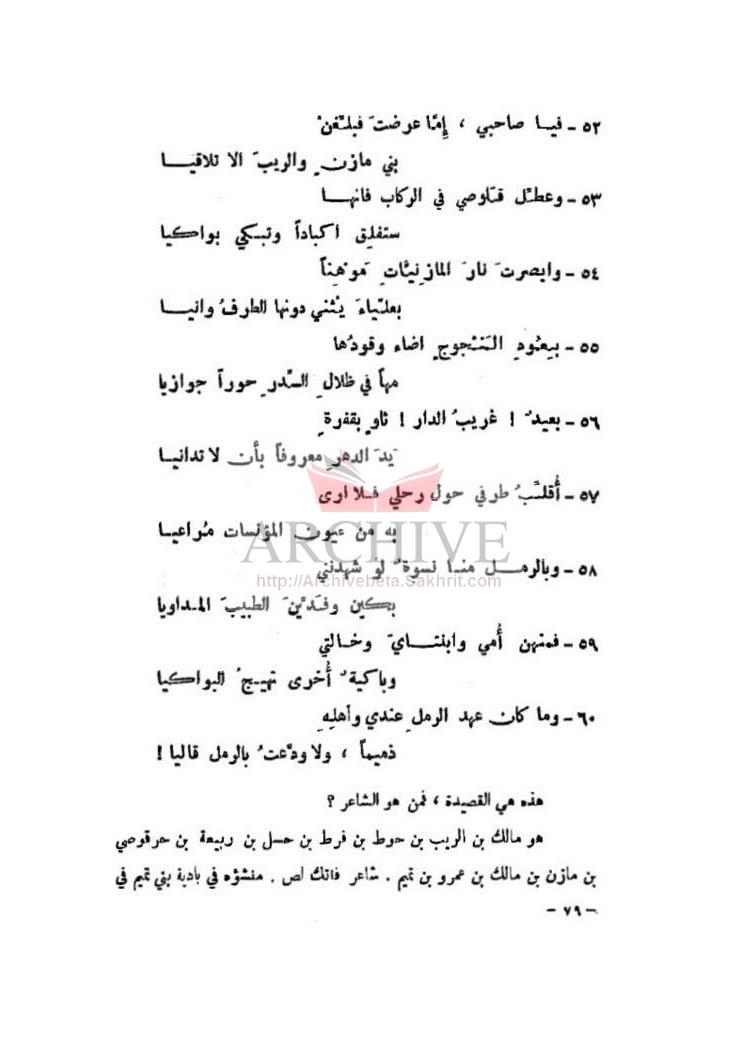 ٥٢ - فيا صاحبي ، إمّا عرضتَ فبلّغنْ
بني مازنٍ والريبَ الا تلاقيا
٥٣ - وعطّل قلوصي في الركاب فانها
ستفلِق اكباداً وتبكي بواكيا
٥٤ - وابصرتَ نارَ المازنيّاتِ مَوْهِناً
بعلياءَ يُثني دونها الطرفُ وانيا
٥٥ - بِعُودِ النجوجٍ اضاء وقودُها
مهاً في ظلالِ السِّدرِ حوراً جوازيا
٥٦ - بعيدٌ ! غريبُ الدار ! ثاوٍ بقفرةٍ
يَدَ الدهرِ معروفاً بأن لا تدانيا
٥٧ - أُقلّبُ طرفي حول رحلي فلا ارى
به من عيون المؤنسات مُراعيا
٥٨ - وبالرمل منا نسوةٌ لو شهدنني
بكين وفدَّيْنَ الطبيبَ المداويا
٥٩ - فمنهن أُمي وابنتايَ وخالتي
وباكيةٌ أُخرى تهيجُ البواكيا
٦٠ - وما كان عهد الرملِ عندي وأهلِهِ
ذميماً ، ولا ودَّعتُ بالرمل قاليا !
هذه هي القصيدة ، فمن هو الشاعر ؟
هو مالك بن الريب بن حوط بن قرط بن حسل بن ربيعة بن حرقوصي
بن مازن بن مالك بن عمرو بن تميم . شاعر فاتك لص . منشؤه في بادية بني تميم في
- ٧٩ -
ARCHIVE
http://Archivebeta.Sakhrit.com